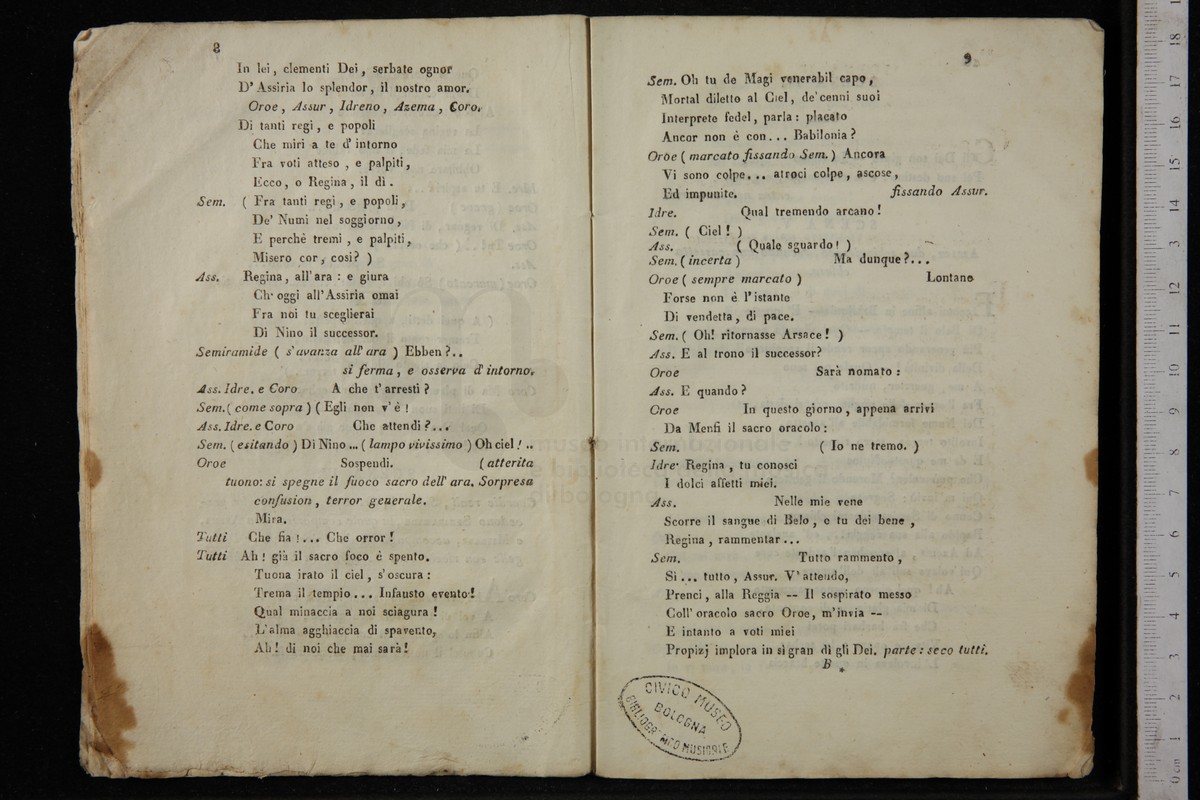 8
In lei, clementi Dei, serbate ognor
D' Assiria lo splendor, il nostro amor.
Oroe, Assur, Idreno, Azema, Coro.
Di tanti regi, e popoli
Che miri a te d' intorno
Fra voti atteso, e palpiti,
Ecco, o Regina, il dì.
Sem. ( Fra tanti regi, e popoli,
De' Numi nel soggiorno,
E perchè tremi, e palpiti,
Misero cor, così? )
Ass. Regina, all' ara : e giura
Ch' oggi all' Assiria omai
Fra noi tu sceglierai
Di Nino il successor.
Semiramide ( s' avanza all' ara ) Ebben?..
si ferma, e osserva d' intorno.
Ass. Idre. e Coro A che t' arresti ?
Sem. ( come sopra ) ( Egli non v' è !
Ass. Idre. e Coro Che attendi ?...
Sem. ( esitando ) Di Nino ... ( lampo vivissimo ) Oh ciel ! ..
Oroe Sospendi. ( atterita
tuono: si spegne il fuoco sacro dell' ara. Sorpresa
confusion, terror geuerale.
Mira.
Tutti Che fia !... Che orror !
Tutti Ah ! già il sacro foco è spento.
Tuona irato il ciel, s' oscura :
Trema il tempio ... Infausto evento !
Qual minaccia a noi sciagura !
L' alma agghiaccia di spavento,
Ah ! di noi che mai sarà!
9
Sem. Oh tu de Magi venerabil capo,
Mortal diletto al Ciel, de' cenni suoi
Interprete fedel, parla : placato
Ancor non è con... Babilonia ?
Oroe ( marcato fissando Sem. ) Ancora
Vi sono colpe... atroci colpe, ascose,
Ed impunite. fissando Assur.
Idre. Qual tremendo arcano !
Sem. ( Ciel ! )
Ass. ( Quale sguardo ! )
Sem. ( incerta ) Ma dunque ?...
Oroe ( sempre marcato ) Lontano
Forse non è l' istante
Di vendetta, di pace.
Sem. ( Oh! ritornasse Arsace ! )
Ass. E al trono il successor?
Oroe Sarà nomato :
Ass. E quando ?
Oroe In questo giorno, appena arrivi
Da Menfi il sacro oracolo :
Sem. ( Io ne tremo. )
Idre. Regina, tu conosci
I dolci affetti miei.
Ass. Nelle mie vene
Scorre il sangue di Belo, e tu dei bene ,
Regina, rammentar ...
Sem. Tutto rammento,
Si ... tutto, Assur. V' attendo,
Prenci, alla Reggia — Il sospirato messo
Coll' oracolo sacro Oroe, m' invia —
E intanto a voti miei
Propizj implora in sì gran dì gli Dei. parte : seco tutti.
B *
CIVICO MUSEO
BOLOGNA
BIBLIOGRAFICO MUSICALE
museo internazionale
e biblioteca della musica
di bologna
0 cm 1 2 3 4 5 6 7 8 9 10 11 12 13 14 15 16 17 18